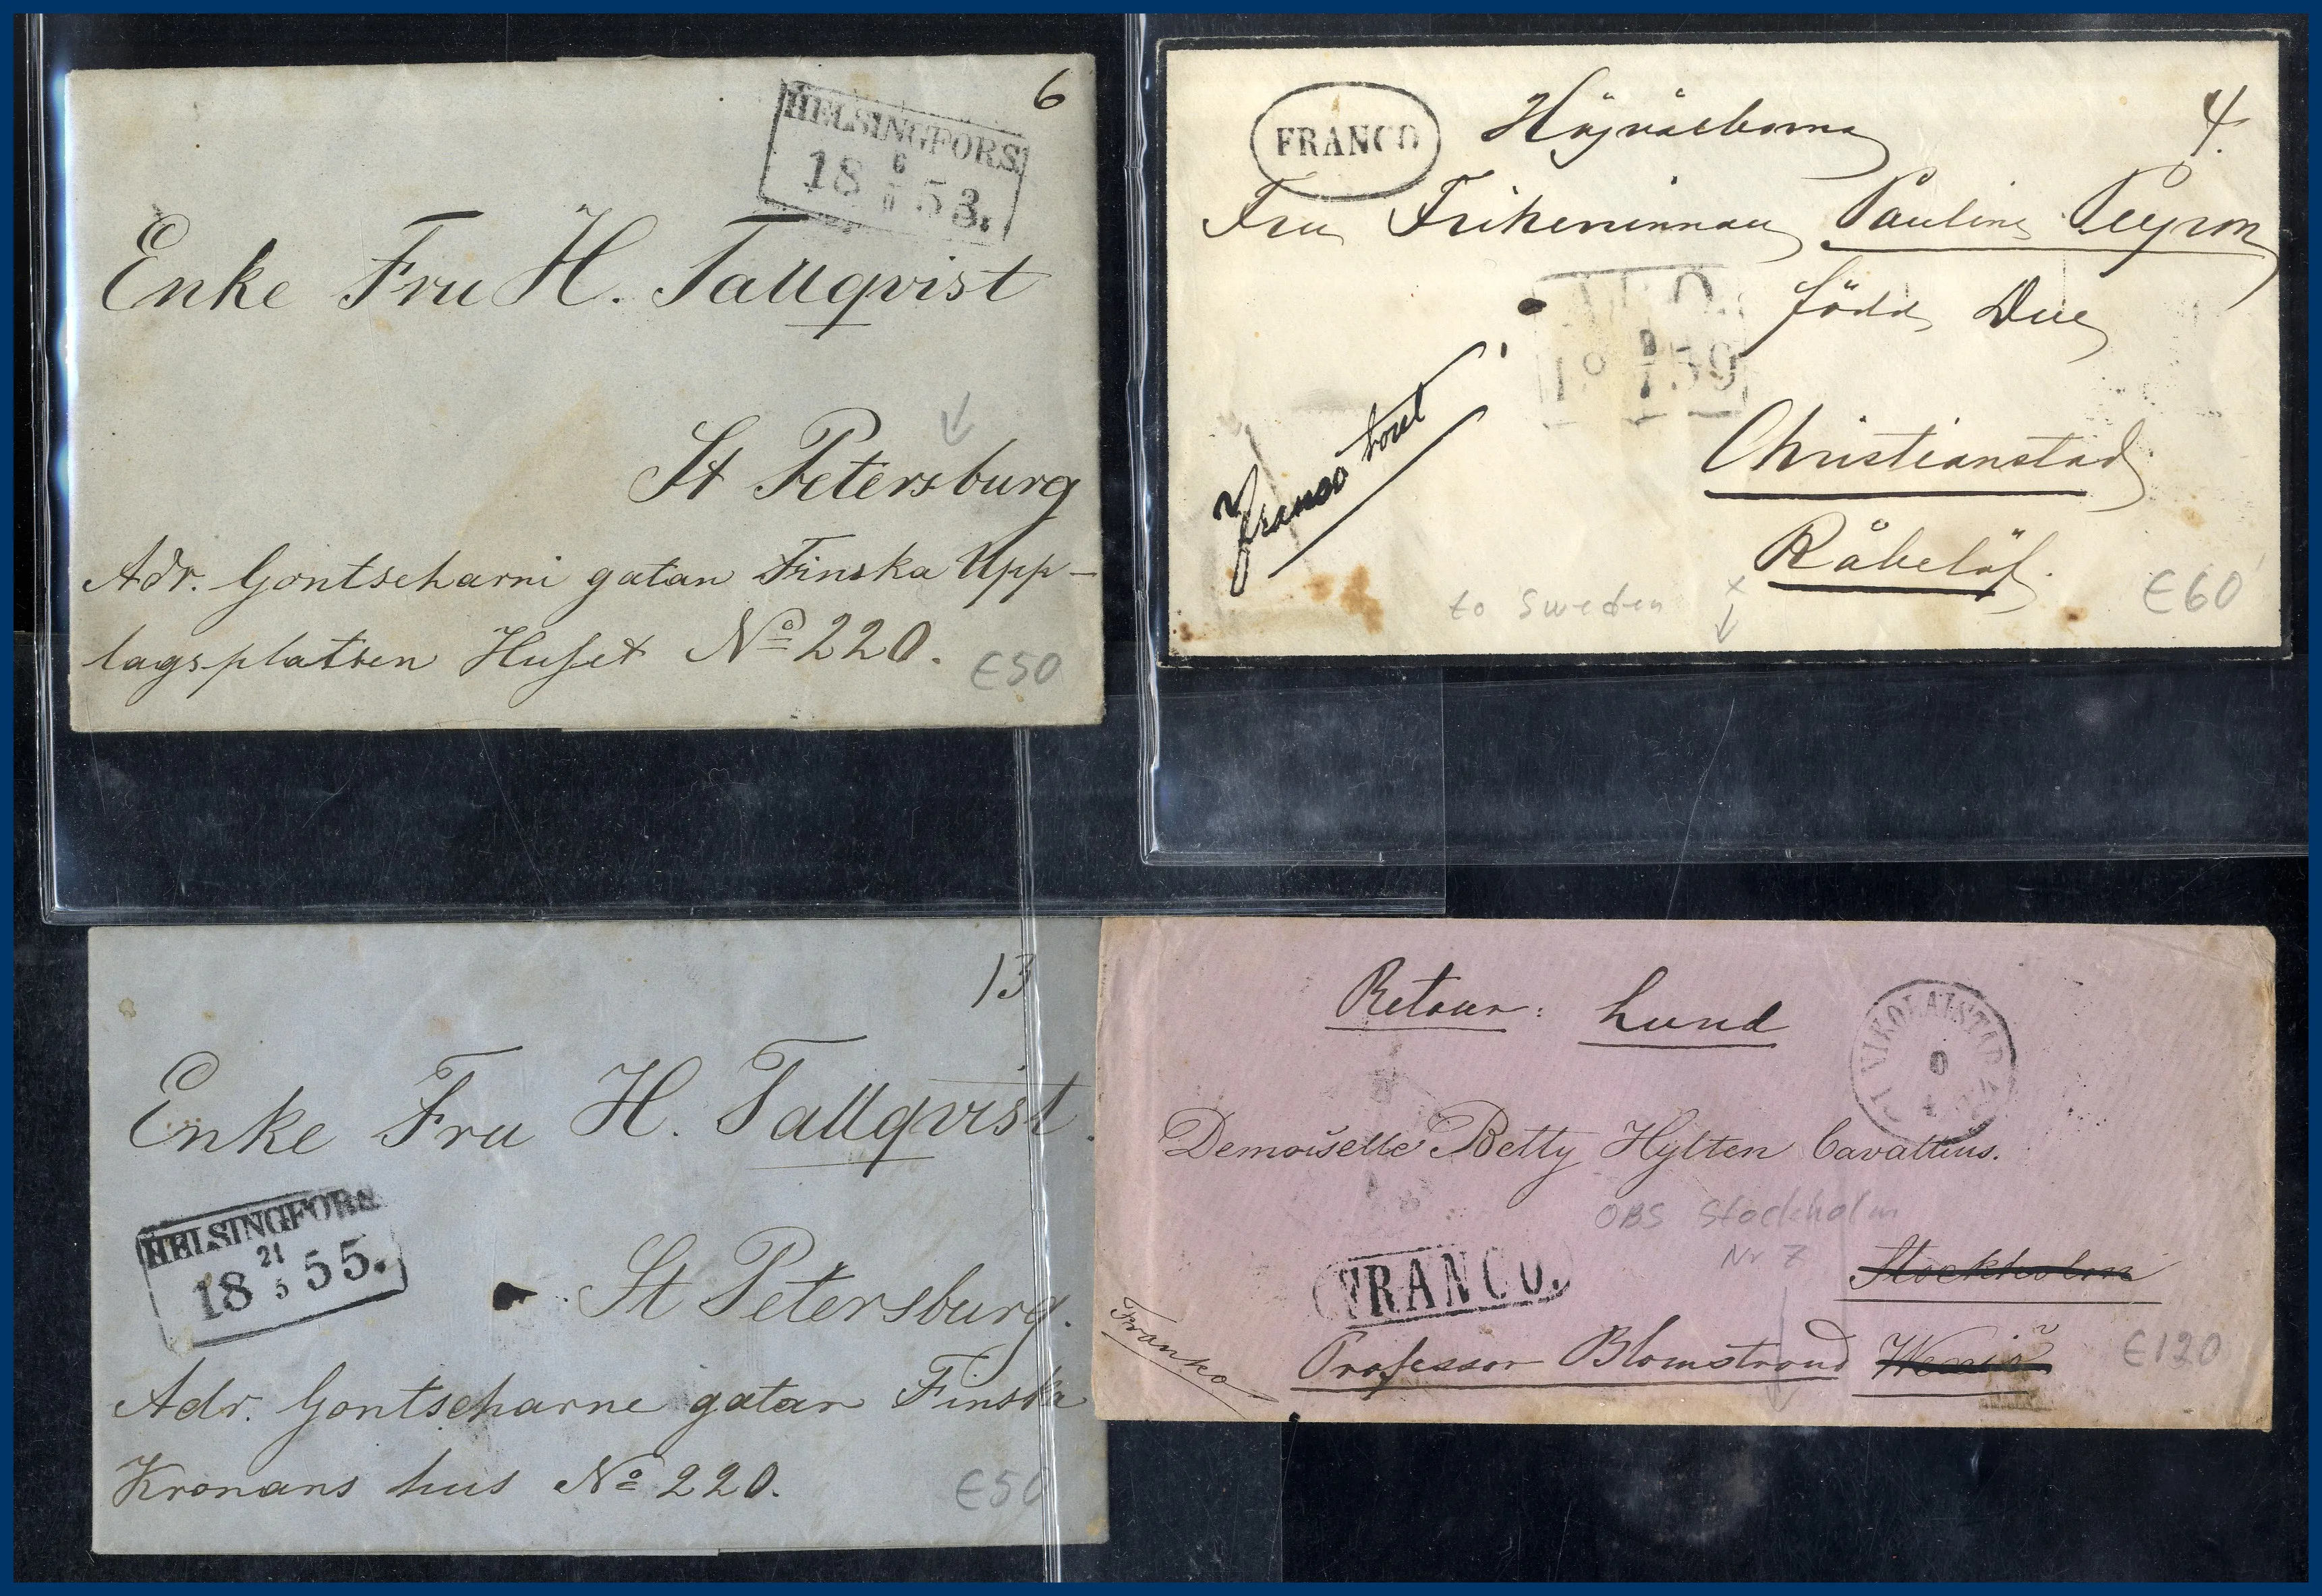 6
HELSINGFORS.
6
18 53.
Enke Fru H. Tallqvist
St Petersburg
Adr. Gontscharni gatan Finska Upp-
lagsplatsen Huset No 220.
€50
FRANCO
Högvälborna
4.
Fru Friherrinnan Pauline Peyron
född Due
ABO.
Franco
Christianstad
Råbelöf.
to Sweden
€60
13
Enke Fru H. Tallqvist.
HELSINGFORS.
21
18 5 55.
St Petersburg.
Adr. Gontscharne gatan Finska
Kronans hus No 220.
€50
Retour: Lund
NIKOLAISTAD
9
4
Demoiselle Betty Hylten Cavallius.
OBS Stockholm
Nr 7
Stockholm
FRANCO.
Franko
Professor Blomstrand Wexiö
€120